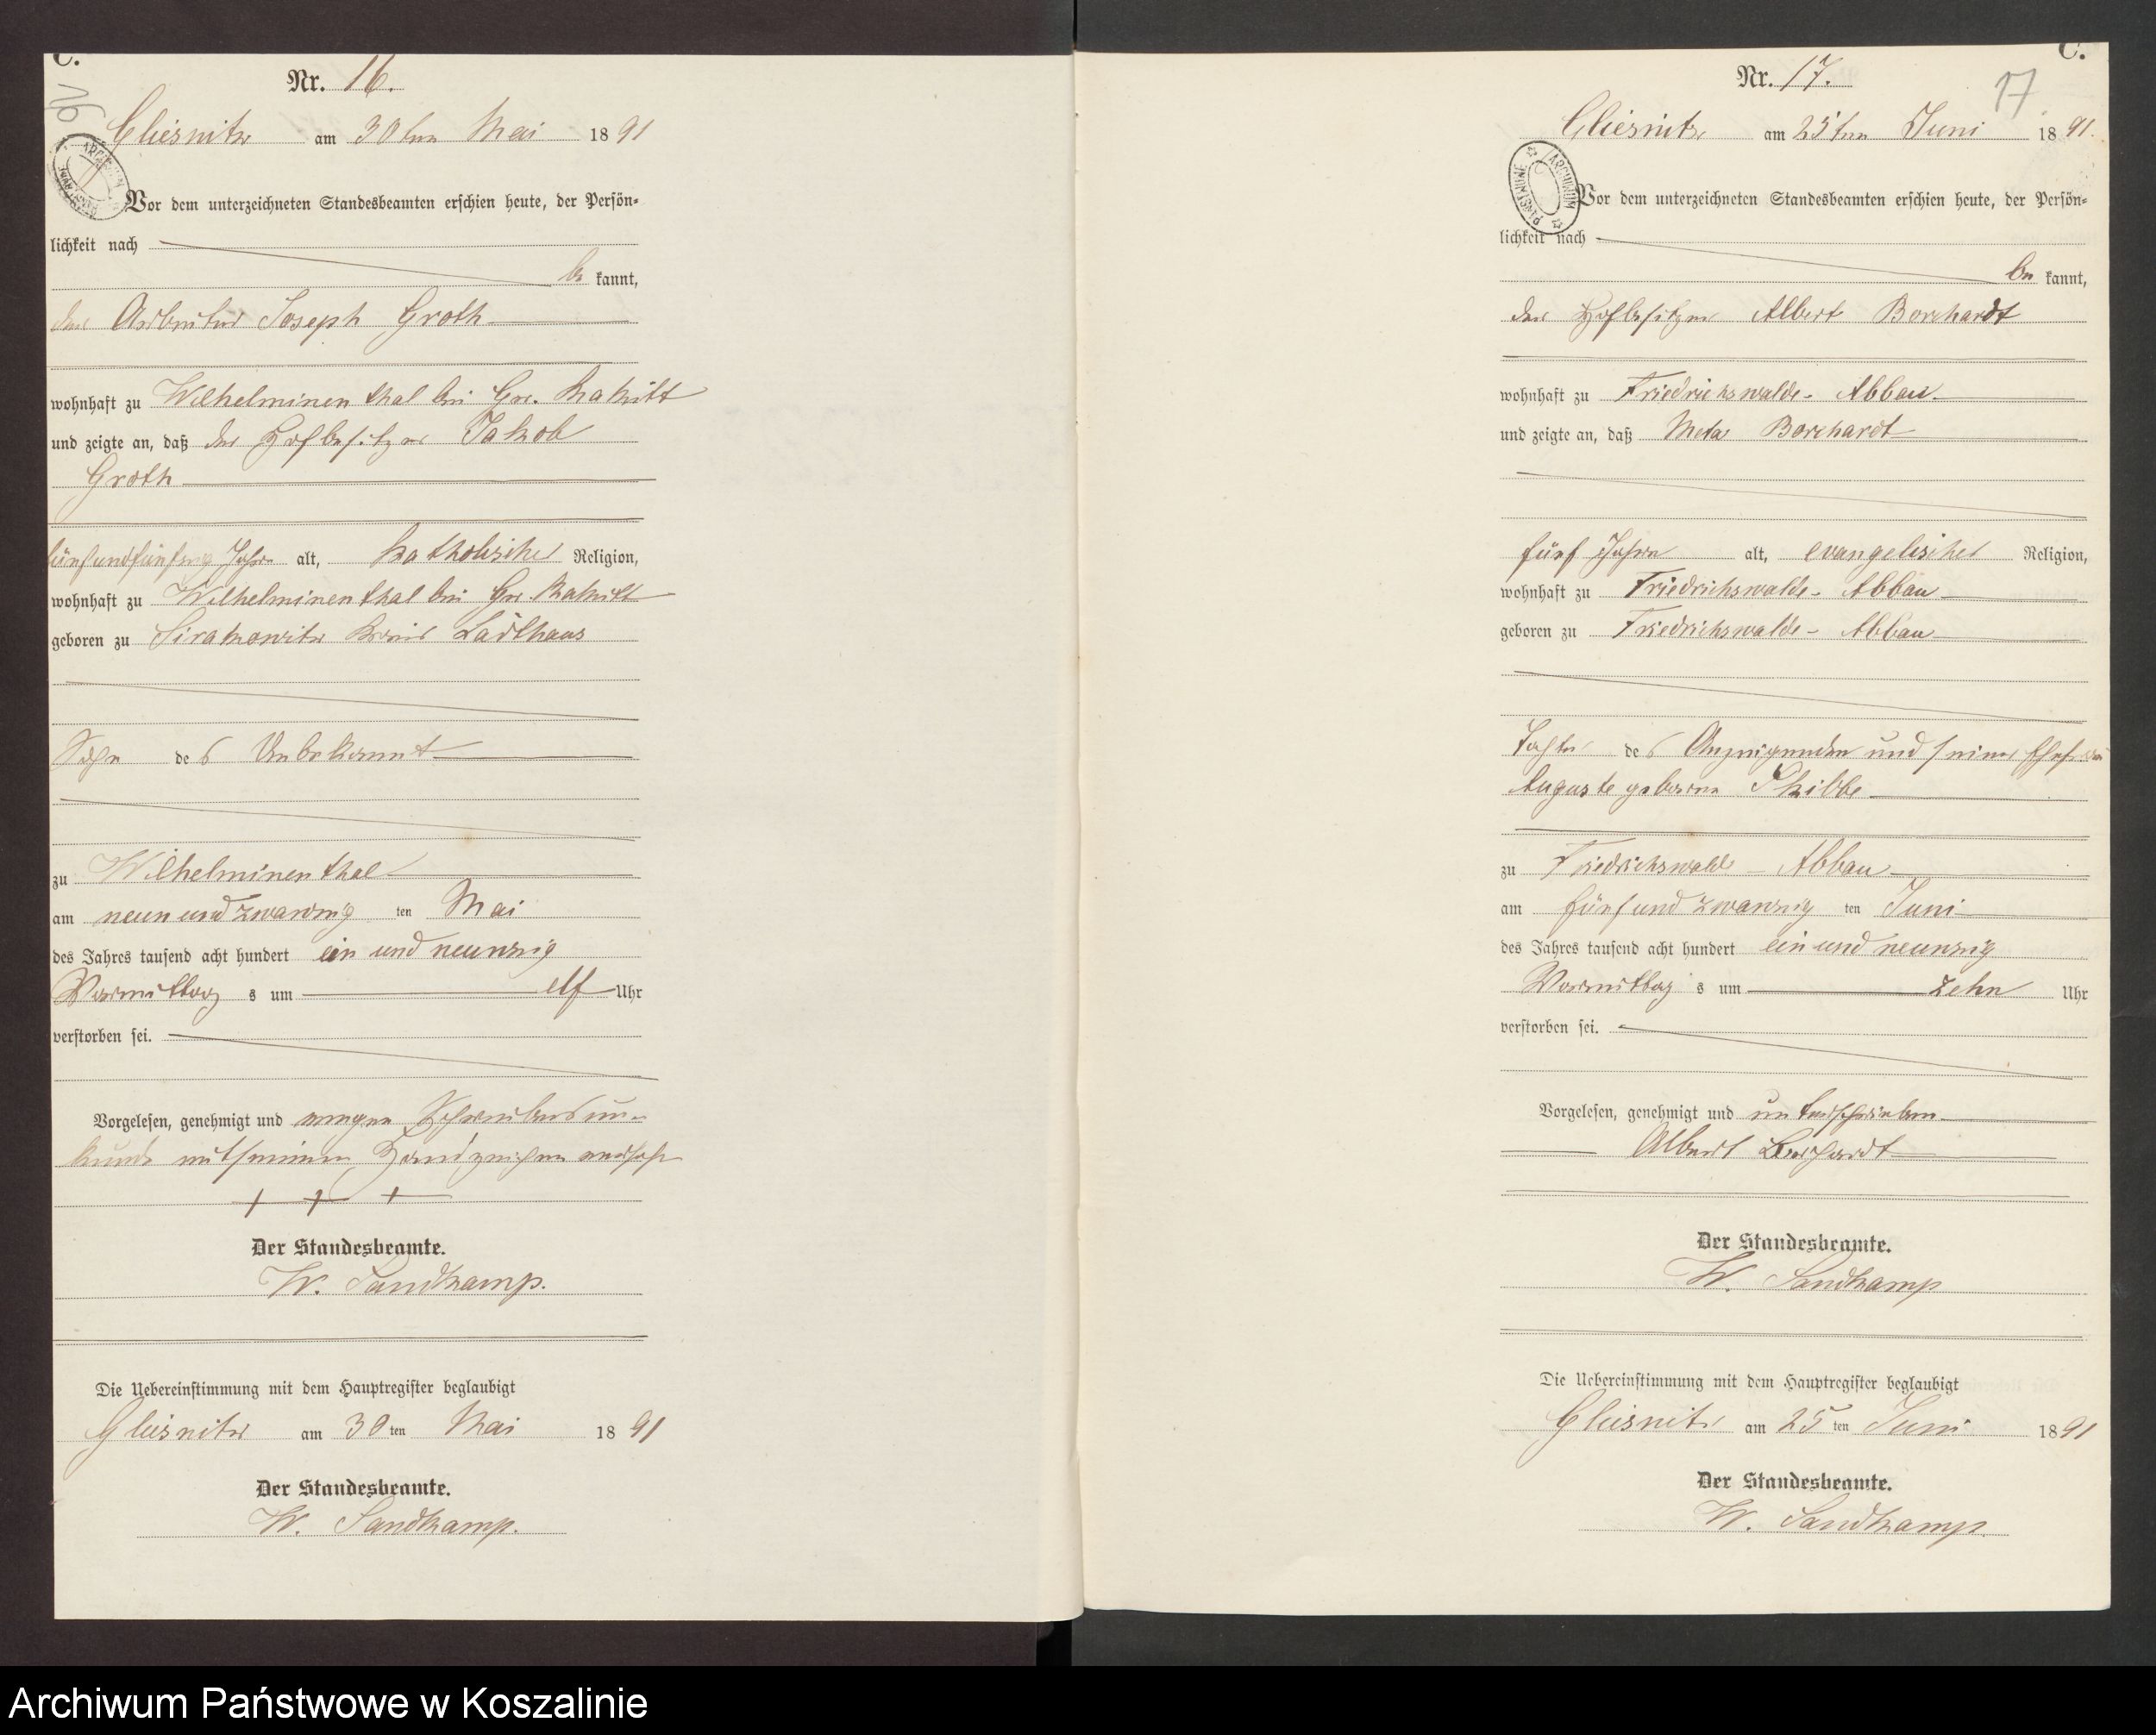 C.
16
Nr. 16.
Gliesnitz am 30ten Mai 1891
ARCHIWUM PAŃSTWOWE
Vor dem unterzeichneten Standesbeamten erschien heute, der Persön-
lichkeit nach
be kannt,
der Arbeiter Joseph Groth
wohnhaft zu Wilhelminenthal bei Gr. Rakitt
und zeigte an, daß der Hofbesitzer Jakob
Groth
fünfundfünfzig Jahre alt, katholischer Religion,
wohnhaft zu Wilhelminenthal bei Gr. Rakitt
geboren zu Sirakowitz Kreis
Sohn des Unbekannt
zu Wilhelminenthal
am neun und zwanzig ten Mai
des Jahres tausend acht hundert ein und neunzig
Vormittag s um elf Uhr
verstorben sei.
Vorgelesen, genehmigt und wegen Schreibensun-
kunde mit seinem Handzeichen versehen
+ + +
Der Standesbeamte.
W. Sandkamp.
Die Uebereinstimmung mit dem Hauptregister beglaubigt
Gliesnitz am 30 ten Mai 1891
Der Standesbeamte.
W. Sandkamp.
C.
17
Nr. 17.
Gliesnitz am 25ten Juni 1891.
ARCHIWUM PAŃSTWOWE
Vor dem unterzeichneten Standesbeamten erschien heute, der Persön-
lichkeit nach
be kannt,
der Hofbesitzer Albert Borchardt
wohnhaft zu Friedrichswalde-Abbau
und zeigte an, daß Meta Borchardt
fünf Jahre alt, evangelischer Religion,
wohnhaft zu Friedrichswalde-Abbau
geboren zu Friedrichswalde-Abbau
Tochter des Anzeigenden und seiner Ehefrau
Auguste geborene
zu Friedrichswalde-Abbau
am fünf und zwanzig ten Juni
des Jahres tausend acht hundert ein und neunzig
Vormittag s um zehn Uhr
verstorben sei.
Vorgelesen, genehmigt und unterschrieben
Albert Borchardt
Der Standesbeamte.
W. Sandkamp
Die Uebereinstimmung mit dem Hauptregister beglaubigt
Gliesnitz am 25 ten Juni 1891
Der Standesbeamte.
W. Sandkamp.
Archiwum Państwowe w Koszalinie